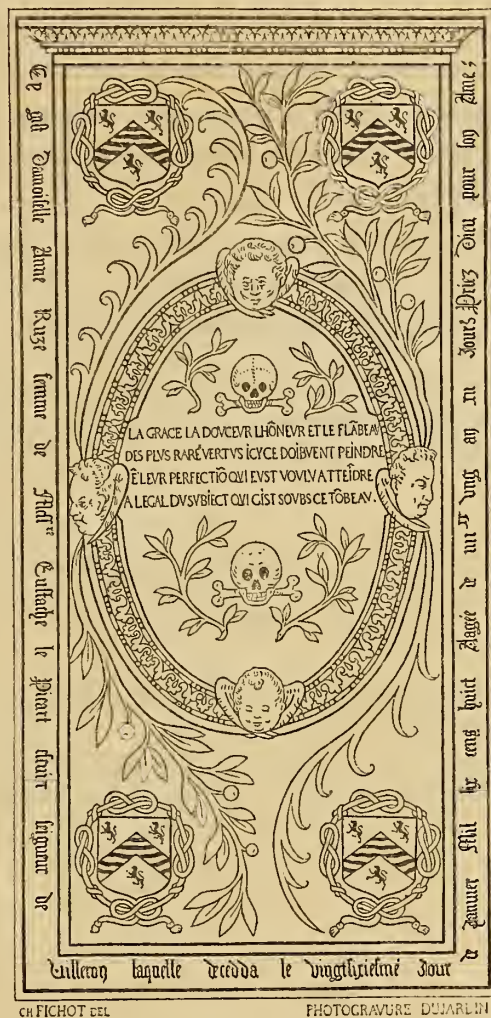 Cy gist Damoiselle Anne Ruze femme de Eustache le Picart escuir seigneur de
Villeron laquelle decedda le vingtsixiesme Jour
de Januier Mil six cens huict Aagée de iiii ˣˣ vng an xu Jours Priez Dieu pour son Ame
LA GRACE LA DOVCEVR LHÕNEVR ET LE FLÃBEAV
DES PLVS RARÉ VERTVS ICY CE DOIBVENT PEINDRE
Ẽ LEVR PERFECTIÕ QVI EVST VOVLV ATTEĨDRE
A LEGAL DV SVBIECT QVI GIST SOVBS CE TÕBEAV.
CH FICHOT DEL
PHOTOGRAVURE DUJARDIN